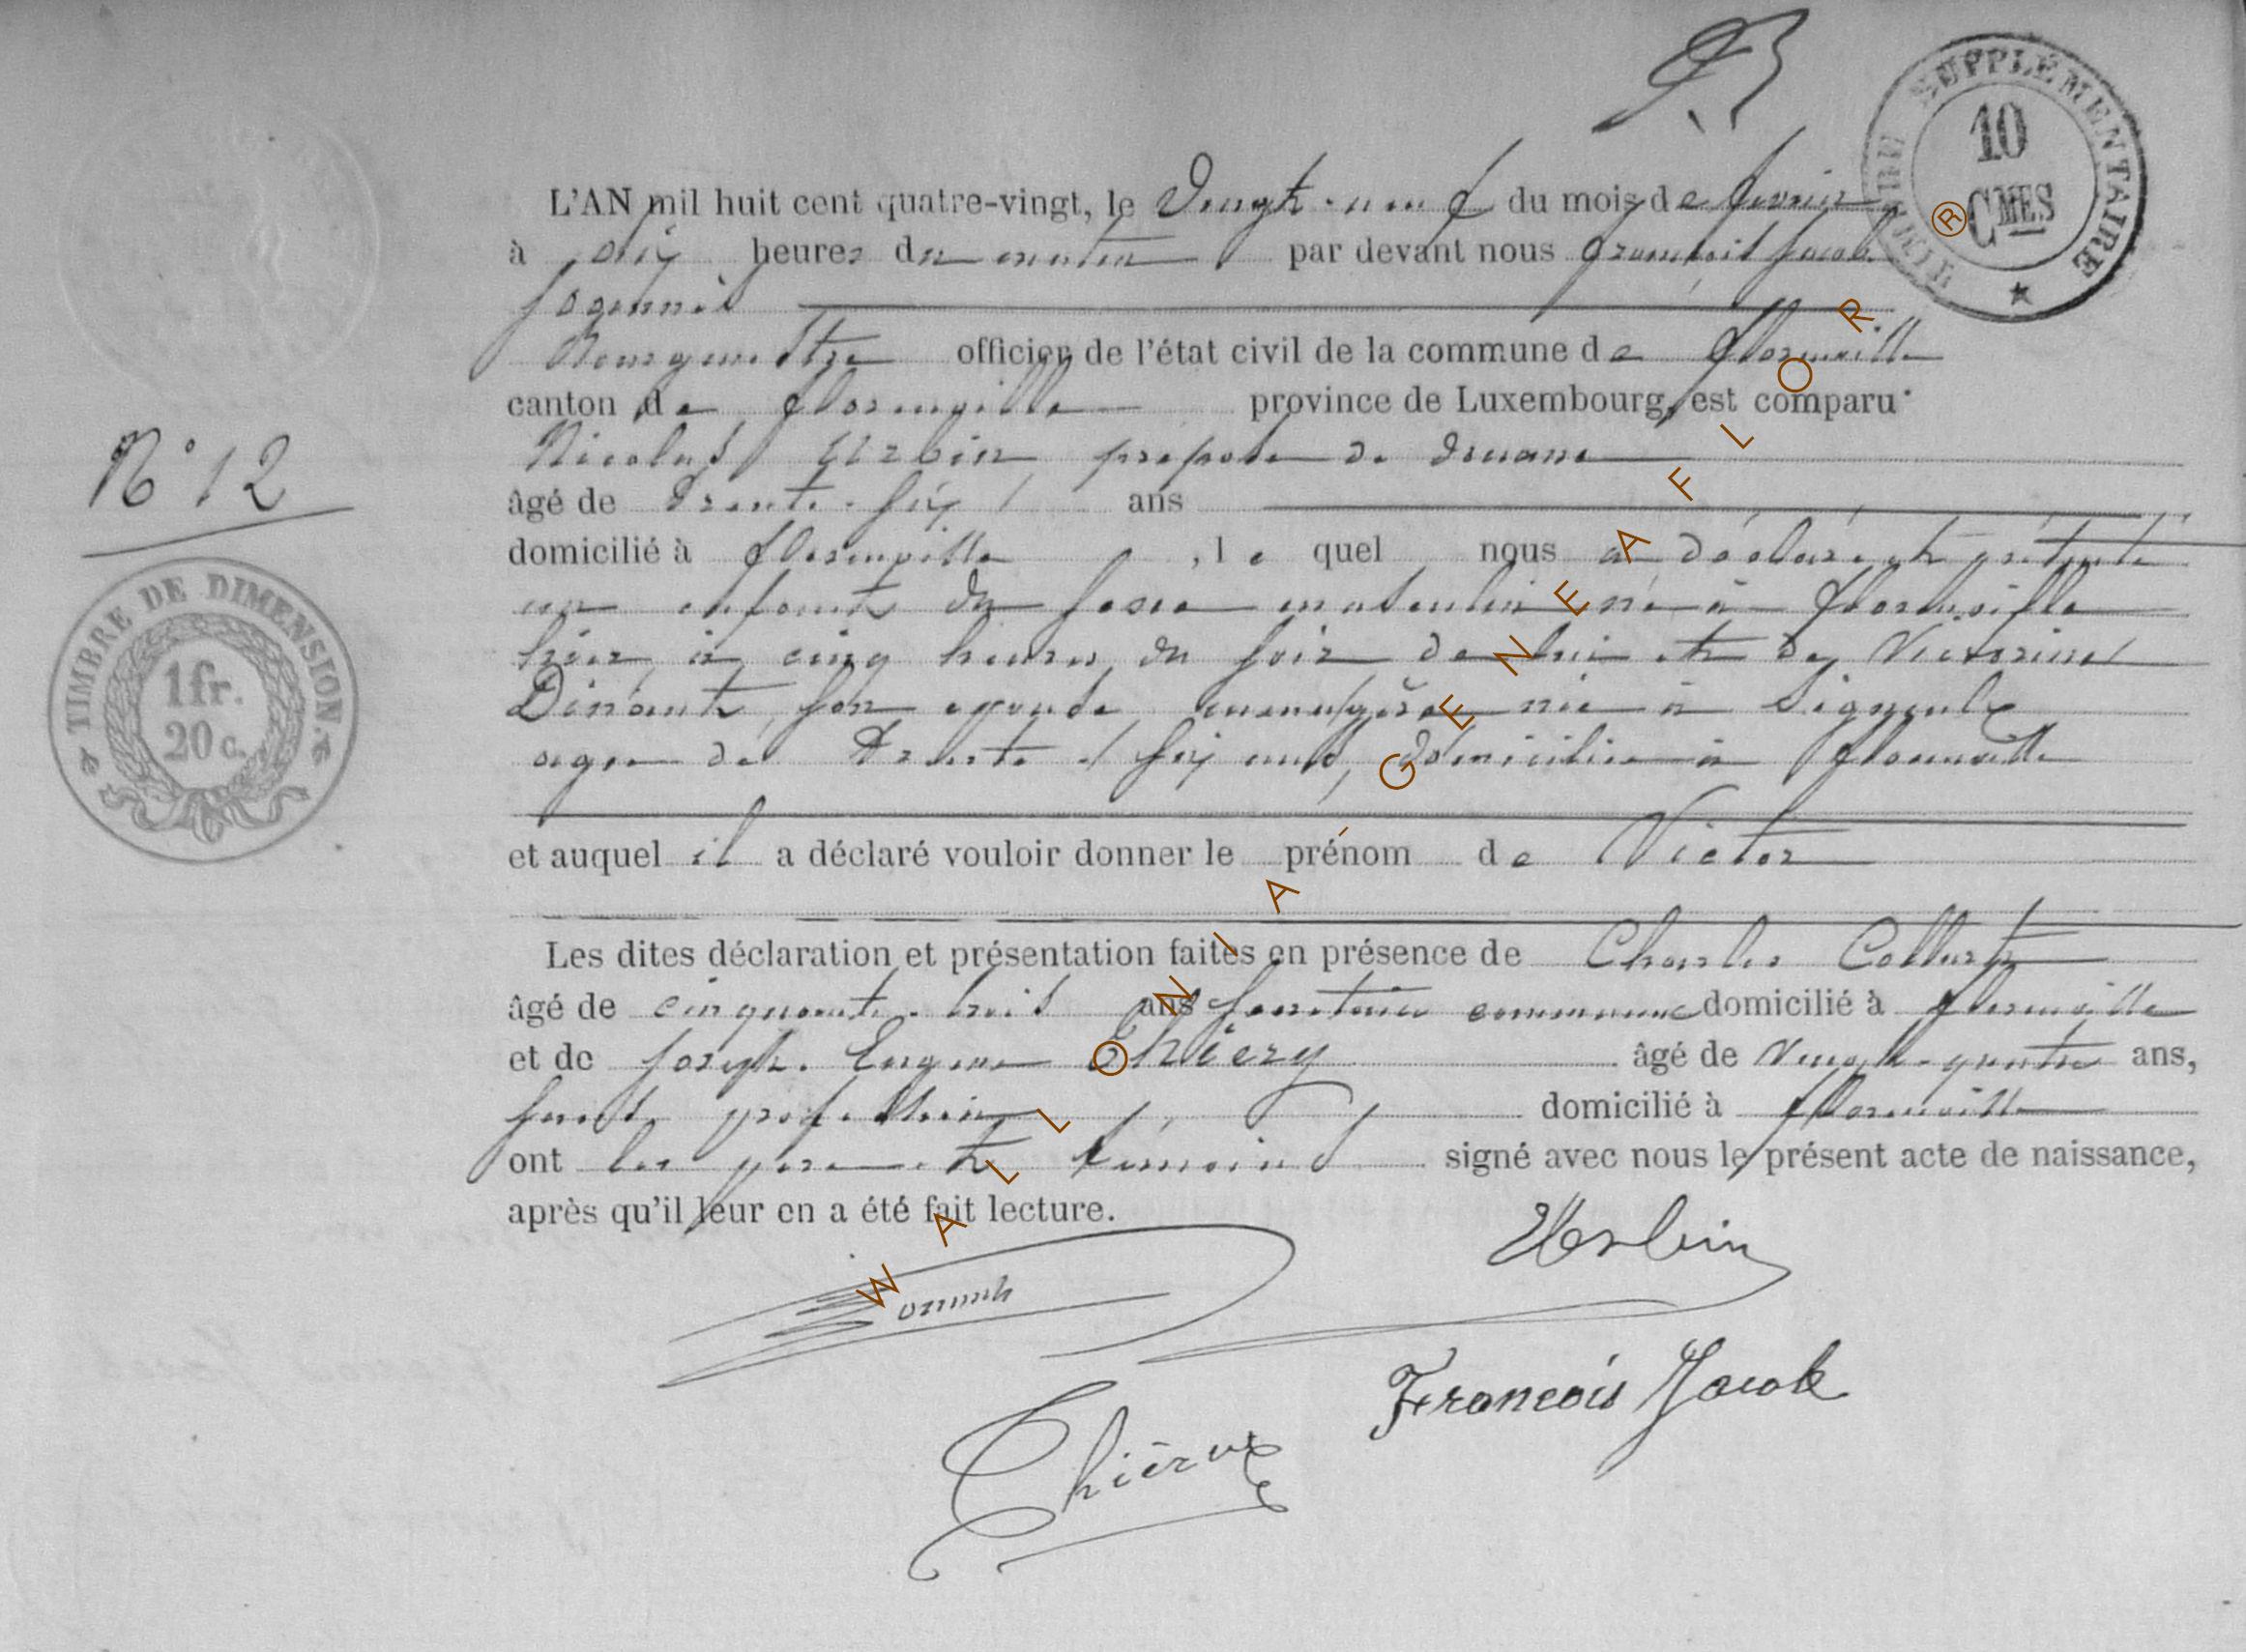 SUPPLÉMENTAIRE
10
CMES
L'AN mil huit cent quatre-vingt, le Vingt-neuf du mois de fevrier
à dix heures du matin par devant nous Jacob
Bourgmestre officier de l'état civil de la commune de florenville
canton de florenville province de Luxembourg, est comparu
Nicolas Urbin préposé de douane
âgé de Trente-six ans
domicilié à florenville, le quel nous a déclaré et présenté
un enfant du sexe masculin né à florenville
hier à cinq heures du soir de lui et de Victorine
Dinant, son epouse, menagère née à Signeulx
agée de Trente six ans, domiciliée à florenville
N° 12
TIMBRE DE DIMENSION.
1 fr.
20 c.
et auquel il a déclaré vouloir donner le prénom de Victor
Les dites déclaration et présentation faites en présence de Charles Collart
âgé de cinquante-huit ans communal domicilié à florenville
et de Joseph Eugene Thiery âgé de Vingt-quatre ans,
sans profession domicilié à florenville
ont les témoins signé avec nous le présent acte de naissance,
après qu'il leur en a été fait lecture.
Thiéry
Francois Jacob
WALLONIA GENEAFLOR ®